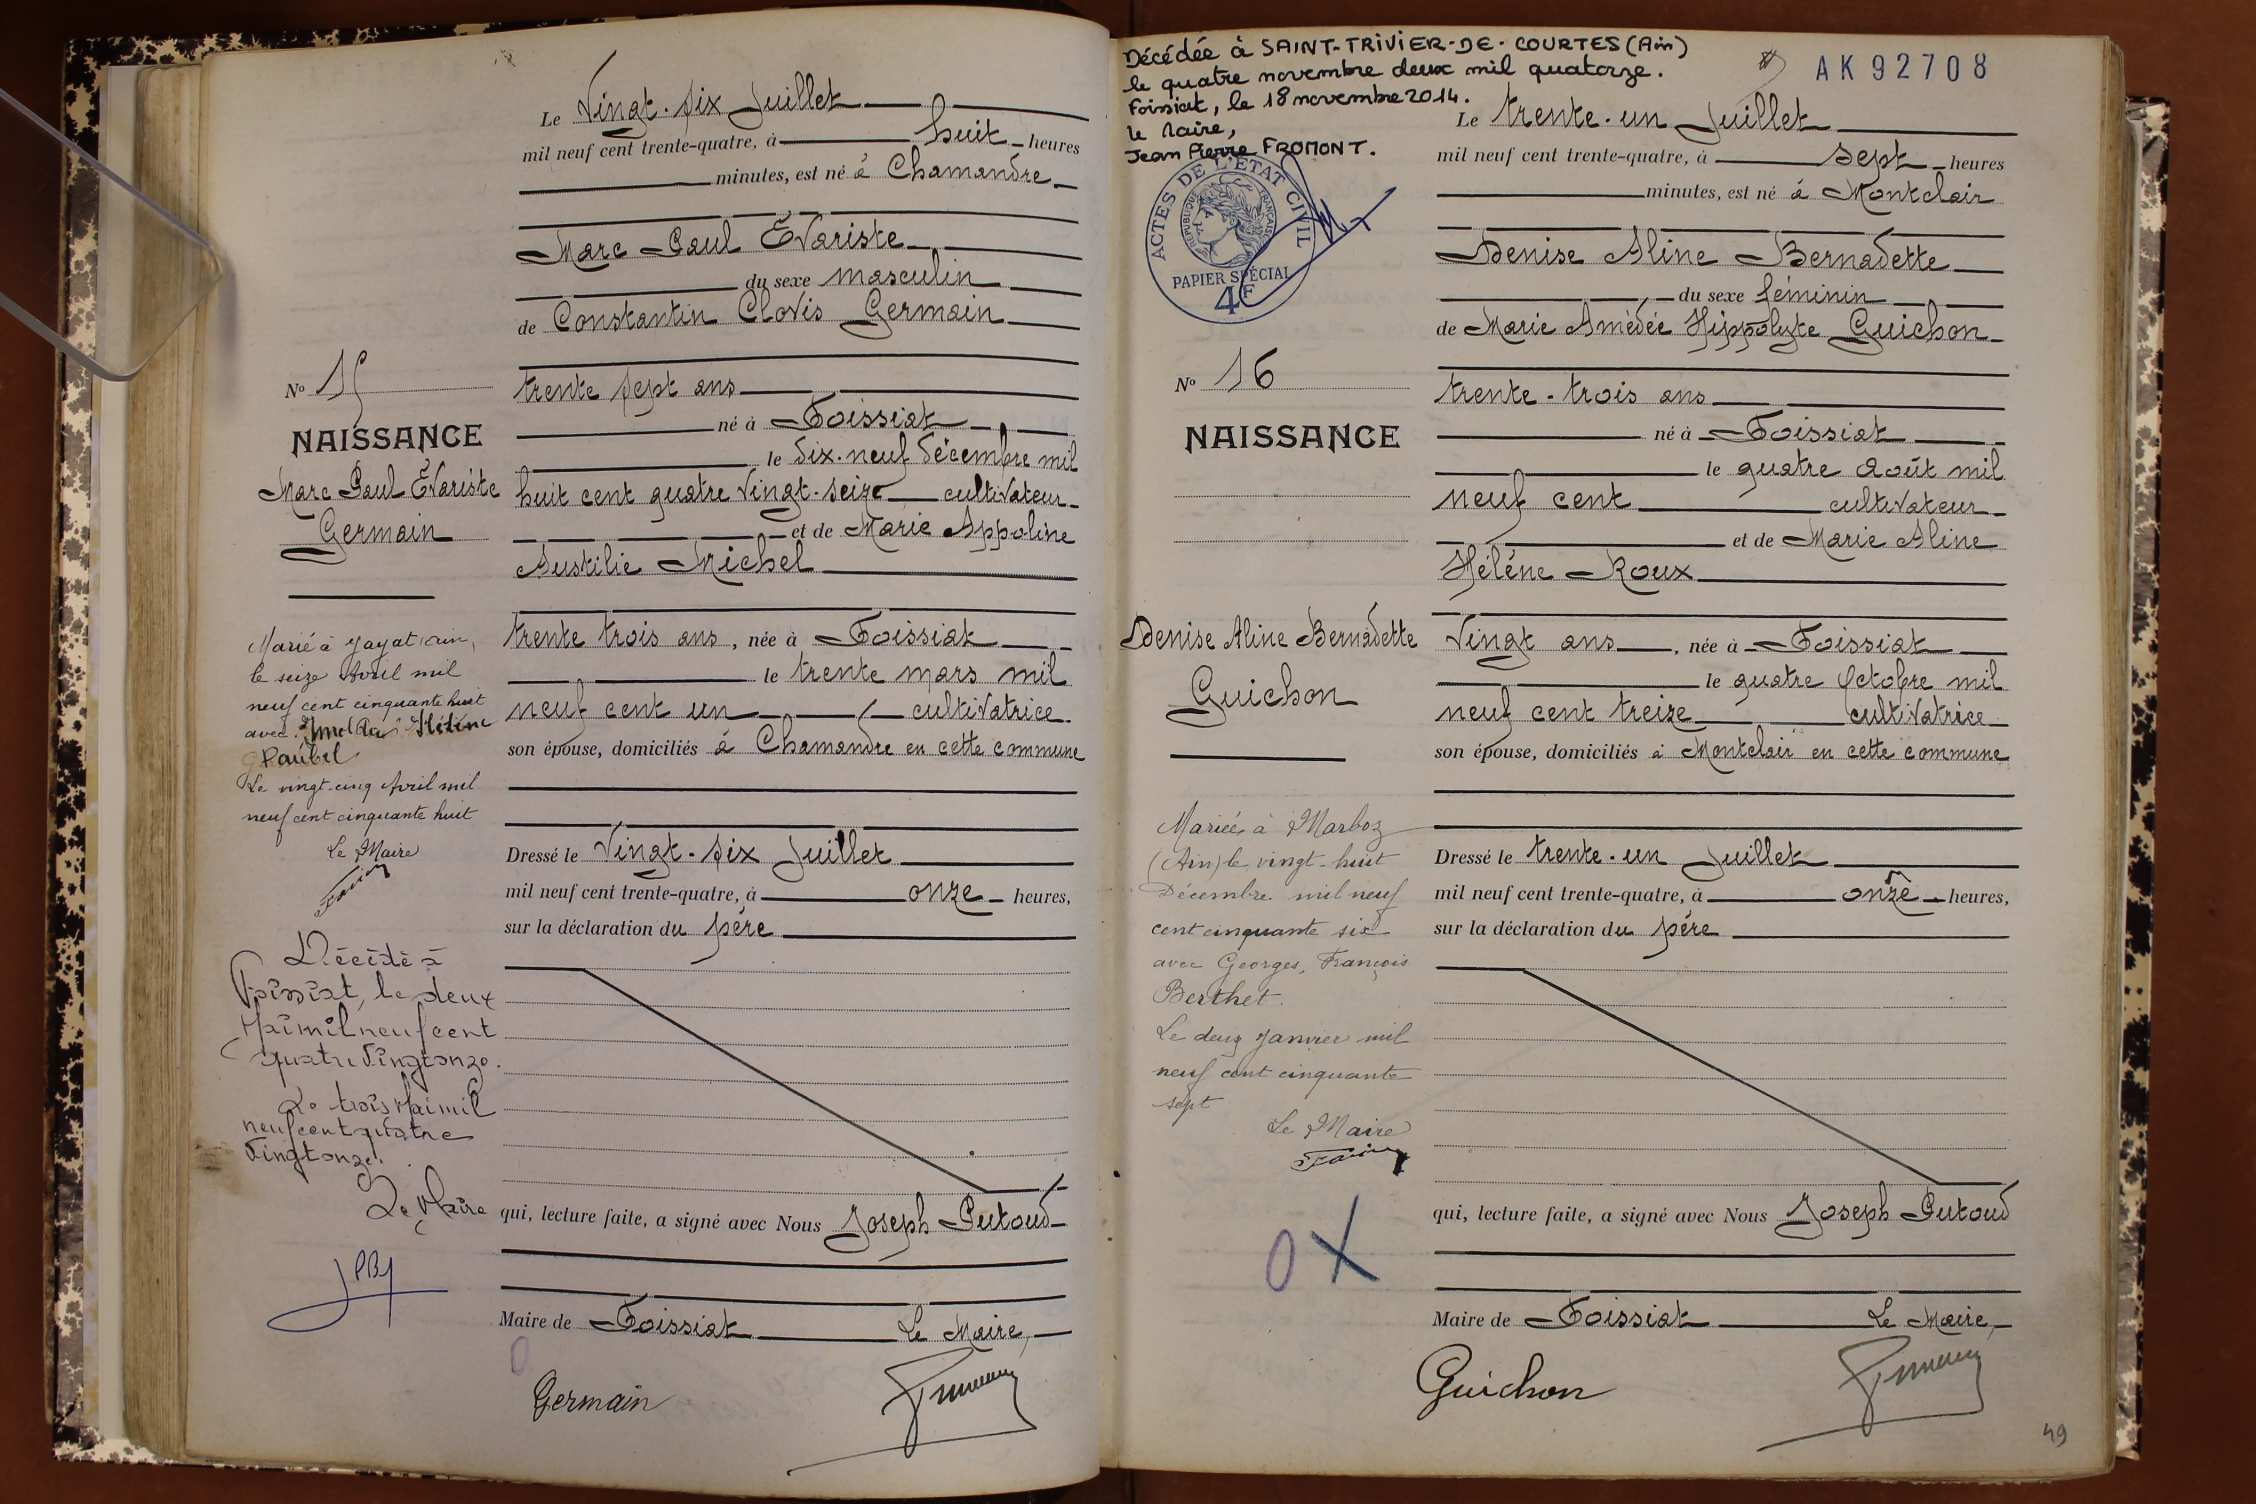 Le Vingt-six Juillet
mil neuf cent trente-quatre, à huit heures
minutes, est né à Chamandre
Marc Paul Évariste
du sexe masculin
de Constantin Clovis Germain
No 15
NAISSANCE
Marc Paul Évariste
Germain
trente sept ans
né à Foissiat
le dix-neuf décembre mil
huit cent quatre vingt-seize cultivateur
et de Marie Appoline
Austilie Michel
trente trois ans, née à Foissiat
le trente mars mil
neuf cent un cultivatrice
son épouse, domiciliés à Chamandre en cette commune
Marié à Jayat (Ain)
le seize Avril mil
neuf cent cinquante huit
avec Imelda Hélène
Paubel
Le vingt-cinq Avril mil
neuf cent cinquante huit
Le Maire
Dressé le Vingt-six Juillet
mil neuf cent trente-quatre, à onze heures,
sur la déclaration du père
Décédé à
Foissiat, le deux
Mai mil neuf cent
quatre vingt onze.
Le trois Mai mil
neuf cent quatre
vingt onze.
Le Maire
qui, lecture faite, a signé avec Nous Joseph Putoud
Maire de Foissiat Le Maire,
Germain
Décédée à SAINT-TRIVIER-DE-COURTES (Ain)
le quatre novembre deux mil quatorze.
Foissiat, le 18 novembre 2014.
Le Maire,
Jean Pierre FROMONT.
ACTES DE L'ÉTAT CIVIL
RÉPUBLIQUE FRANÇAISE
PAPIER SPÉCIAL
4F
AK92708
Le trente-un Juillet
mil neuf cent trente-quatre, à sept heures
minutes, est né à Montclair
Denise Aline Bernadette
du sexe féminin
de Marie Amédée Hippolyte Guichon
No 16
NAISSANCE
trente-trois ans
né à Foissiat
le quatre Août mil
neuf cent cultivateur
et de Marie Aline
Hélène Roux
Denise Aline Bernadette
Guichon
Vingt ans, née à Foissiat
le quatre Octobre mil
neuf cent treize cultivatrice
son épouse, domiciliés à Montclair en cette commune
Mariée à Marboz
(Ain) le vingt-huit
Décembre mil neuf
cent cinquante six
avec Georges, François
Berthet.
Le deux Janvier mil
neuf cent cinquante
sept
Le Maire
Dressé le trente-un Juillet
mil neuf cent trente-quatre, à onze heures,
sur la déclaration du père
0 X
qui, lecture faite, a signé avec Nous Joseph Putoud
Maire de Foissiat Le Maire,
Guichon
49